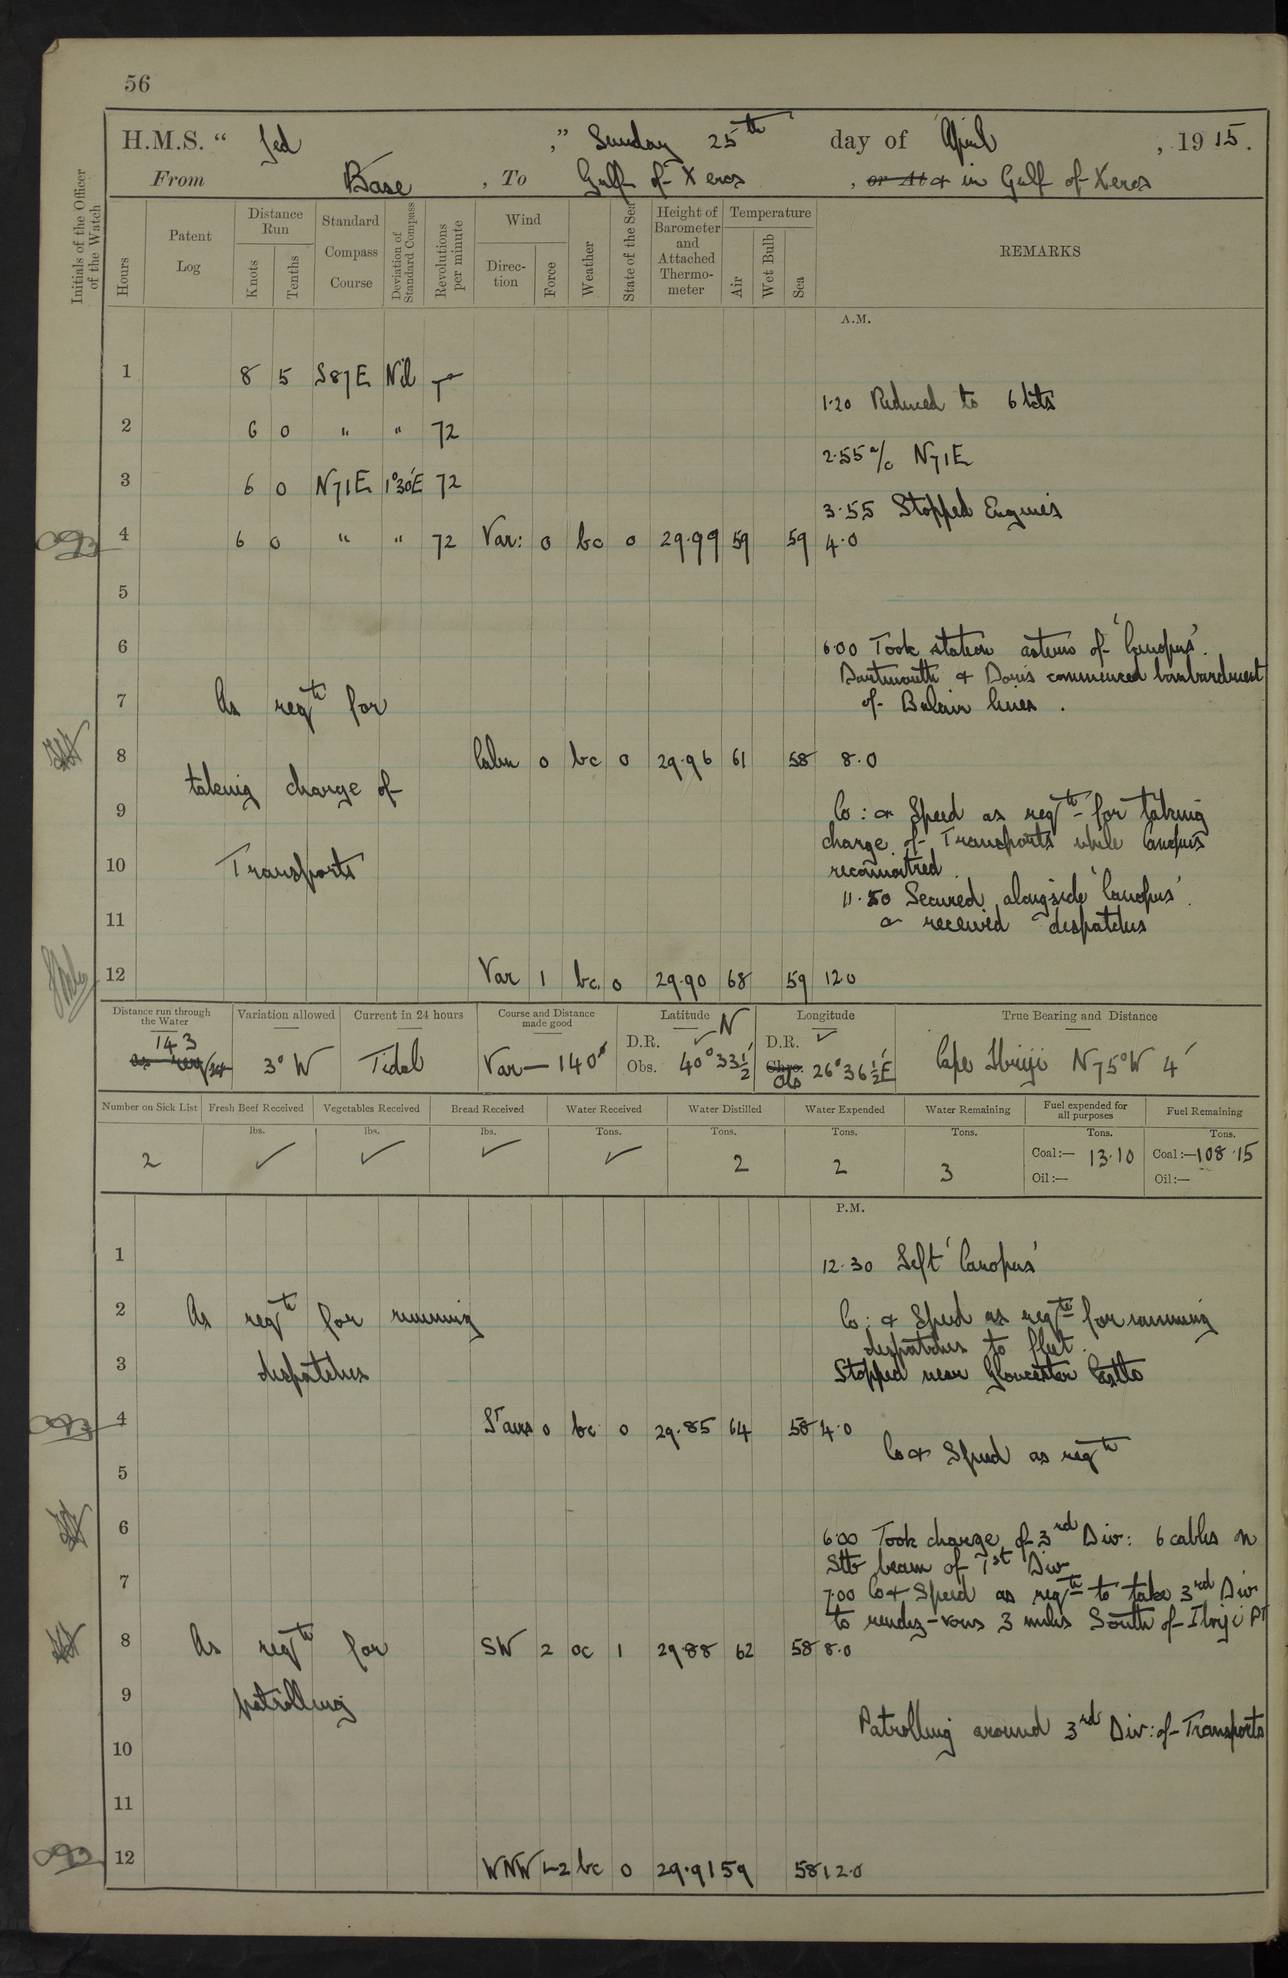 56
H.M.S. “ Jed ,” Sunday 25th day of April , 1915.
From Base , To Gulf of Xeros , or At & in Gulf of Xeros
Initials of the Officer of the Watch
Hours
Patent Log
Distance Run
Knots
Tenths
Standard Compass Course
Deviation of Standard Compass
Revolutions per minute
Wind
Direction
Force
Weather
State of the Sea
Height of Barometer and Attached Thermometer
Temperature
Air
Wet Bulb
Sea
REMARKS
A.M.
1 8 5 S87E Nil
1.20 Reduced to 6 kts
2 6 0 " " 72
2.55 a/c N71E
3 6 0 N71E 1°30'E 72
3.55 Stopped Engines
4 6 0 " " 72 Var: 0 bc 0 29.99 59 59 4.0
5
6
6.00 Took station astern of 'Canopus'.
Dartmouth & Doris commenced bombardment
7 As reqte for
of Bulair lines.
8 Calm 0 bc 0 29.96 61 58 8.0
taking charge of
9
Co: & Speed as reqte for taking
charge of Transports while Canopus
10 Transports
reconnoitred.
11.50 Secured alongside 'Canopus'.
11
& received despatches
12 Var 1 bc 0 29.90 68 59 12.0
Distance run through the Water
143
Variation allowed
3° W
Current in 24 hours
Tidal
Course and Distance made good
Var — 140'
Latitude N
D.R. ✓
Obs. 40° 33½'
Longitude
D.R. ✓
Chro.
Obs 26° 36½' E
True Bearing and Distance
Cape Ibriji N75°W 4'
Number on Sick List
2
Fresh Beef Received
lbs.
✓
Vegetables Received
lbs.
✓
Bread Received
lbs.
✓
Water Received
Tons.
✓
Water Distilled
Tons.
2
Water Expended
Tons.
2
Water Remaining
Tons.
3
Fuel expended for all purposes
Tons.
Coal:— 13.10
Oil:—
Fuel Remaining
Tons.
Coal:— 108.15
Oil:—
P.M.
1
12.30 Left 'Canopus'
2 As reqte for running
Co: & Speed as reqte for running
despatches to fleet.
3 despatches
Stopped near Gloucester Castle
4 Lt airs 0 bc 0 29.85 64 58 4.0
Co & Speed as reqte
5
6
6.00 Took charge of 3rd Div: 6 cables on
Stb beam of 1st Div
7
7.00 Co & Speed as reqte to take 3rd Div
to rendez-vous 3 miles South of Ibriji Pt
8 As reqte for SW 2 oc 1 29.88 62 58 8.0
9 patrolling
Patrolling around 3rd Div: of Transports
10
11
12 WNW 1-2 bc 0 29.91 59 58 12.0